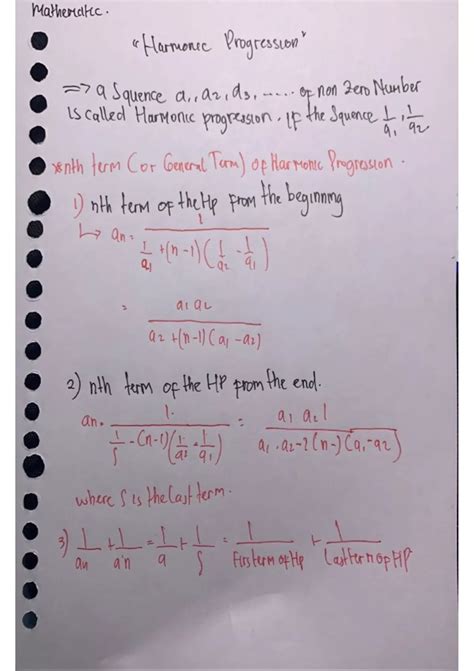 Mathematic.
"Harmonic Progression"
=> a Squence a₁, a₂, a₃, ...... of non Zero Number
is called Harmonic progression. If the Squence 1/a₁, 1/a₂
*nth term (or General Term) of Harmonic Progression.
1) nth term of the Hp from the beginning
↳ an = 1 / (1/a₁ + (n-1)(1/a₂ - 1/a₁))
= a₁a₂ / (a₂+(n-1)(a₁-a₂))
2) nth term of the HP from the end.
an = 1 / (1/ʃ - (n-1)(1/a₂ - 1/a₁)) = a₁ a₂ l / (a₁.a₂-l(n-)(a₁-a₂))
where ʃ is the Last term.
3) 1/an + 1/a'n = 1/a + 1/ʃ = 1/First term of Hp + 1/Last term of HP